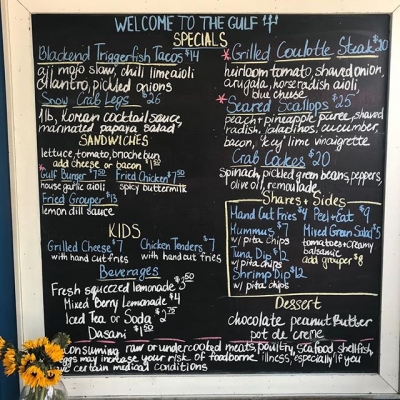 WELCOME TO THE GULF
SPECIALS
Blackend Triggerfish Tacos $14
aji mojo slaw, chili lime aioli
cilantro, pickled onions
Snow Crab Legs $26
1 lb, Korean cocktail sauce,
marinated papaya salad
SANDWICHES
lettuce, tomato, brioche bun
add cheese or bacon $1.50
*Gulf Burger $7.50
house garlic aioli
Fried Chicken $7.50
spicy buttermilk
Fried Grouper $13
lemon dill sauce
KIDS
Grilled Cheese $7
with hand cut fries
Chicken Tenders $7
with hand cut fries
Beverages
Fresh squeezed lemonade $3.50
Mixed Berry Lemonade $4
Iced Tea or Soda $2
Dasani $1.50
*Grilled Coulotte Steak $20
heirloom tomato, shaved onion,
arugala, horseradish aioli,
blue cheese
*Seared Scallops $25
peach + pineapple puree, shaved
radish, jaladinos, cucumber,
bacon, "key" lime vinaigrette
Crab Cakes $20
spinach, pickled green beans, peppers,
olive oil, remoulade
Shares + Sides
Hand Cut Fries $4
Hummus $7
w/ pita chips
Tuna Dip $12
w/ pita chips
Shrimp Dip $12
w/ pita chips
Peel + Eat $9
Mixed Green Salad $5
tomatoes + creamy
balsamic
add grouper $8
Dessert
chocolate peanut butter
pot de creme
*Consuming raw or undercooked meats, poultry, seafood, shellfish,
eggs may increase your risk of foodborne illness, especially if you
have certain medical conditions